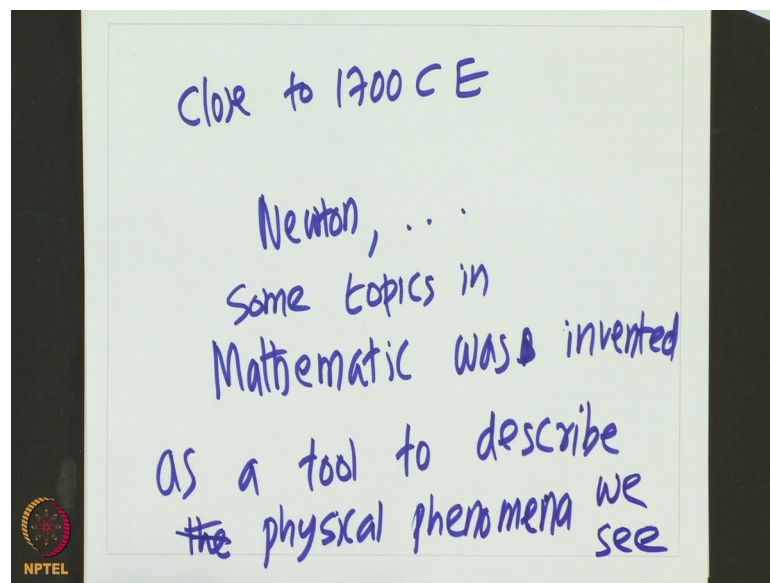 Close to 1700 CE
Newton, ...
Some topics in
Mathematic was invented
as a tool to describe
the physical phenomena we
see
NPTEL